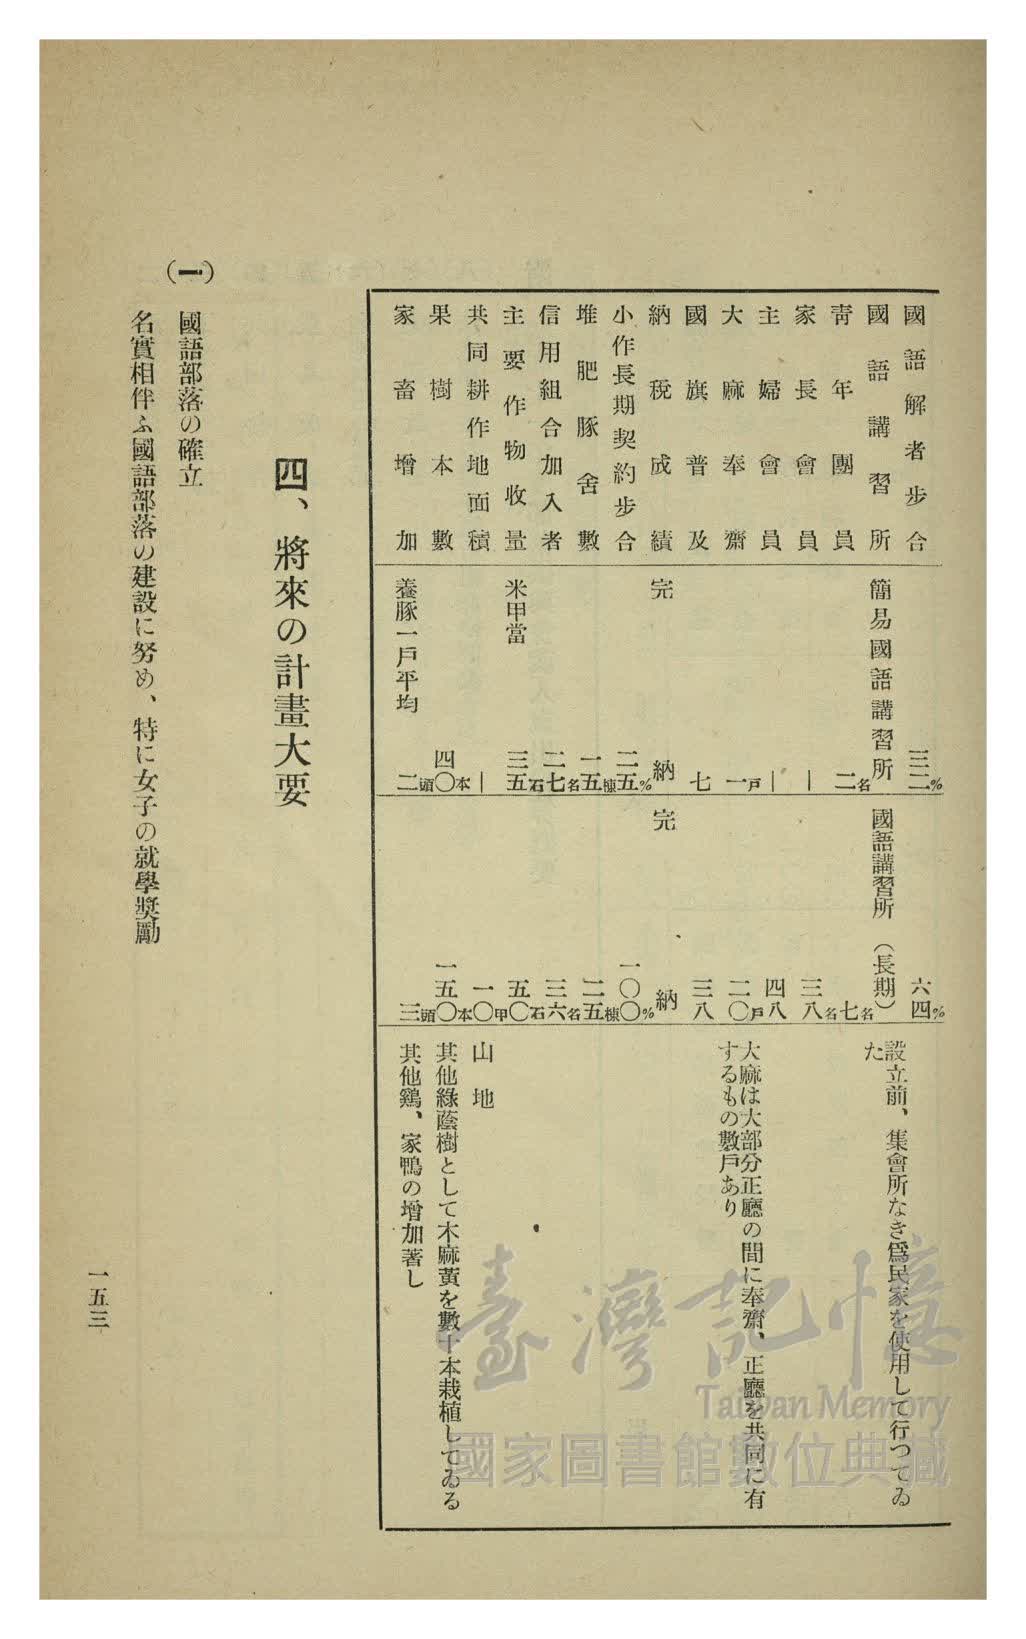 國語解者步合 三二% 六四%
國語講習所 簡易國語講習所 國語講習所（長期） 設立前、集會所なき爲民家を使用して行つてゐ
た
靑年團員 二名 七名
家長會員 ｜ 三八名
主婦會員 ｜ 四八
大麻奉齋 一戶 二〇戶 大麻は大部分正廳の間に奉齋、正廳を共同に有
するもの數戶あり
國旗普及 七 三八
納稅成績 完納 完納
小作長期契約步合 二五% 一〇〇%
堆肥豚舍數 一五棟 二五棟
信用組合加入者 二七名 三六名
主要作物收量 米甲當 三五石 五〇石
共同耕作地面積 ｜ 一〇甲 山地
果樹本數 四〇本 一五〇本 其他綠蔭樹として木麻黃を數十本栽植してゐる
家畜增加 養豚一戶平均 二頭 三頭 其他鷄、家鴨の增加著し
四、將來の計畫大要
（一） 國語部落の確立
名實相伴ふ國語部落の建設に努め、特に女子の就學奬勵
一五三
臺灣記憶
Taiwan Memory
國家圖書館數位典藏